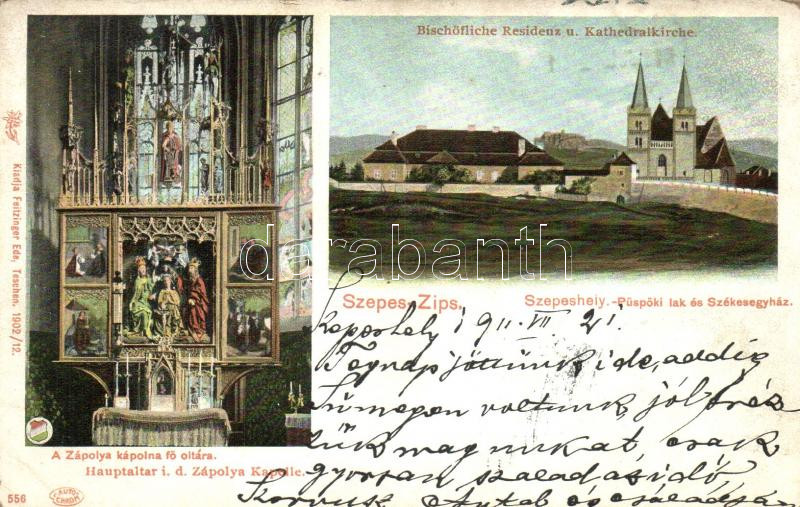 Bischöfliche Residenz u. Kathedralkirche.
Kiadja Feitzinger Ede, Teschen. 1902/12.
darabanth
Szepes-Zips.
Szepeshely.-Püspöki lak és Székesegyház.
Kaposhely 1911. VII 21.
Tegnap jöttünk ide, addig
Sümegen voltunk, jól érez
tük magunkat csak
gyorsan szalad az idő,
és családján
A Zápolya kápolna fő oltára.
Hauptaltar i. d. Zápolya Kapelle.
556
AUTO
CHROM